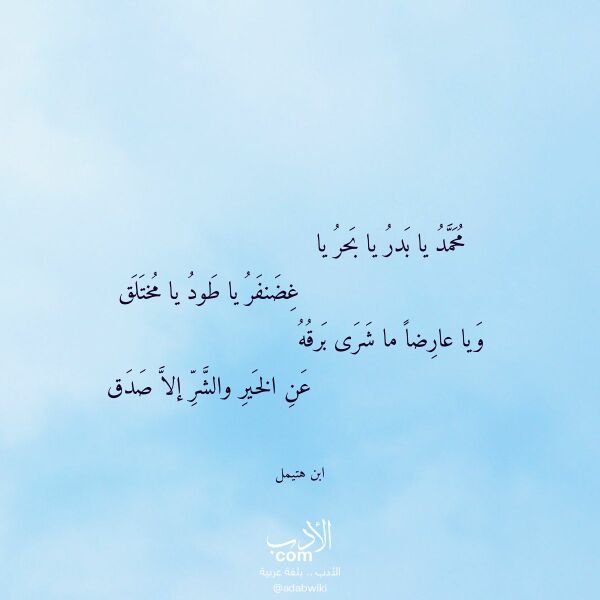 مُحَمَّدُ يا بَدرُ يا بَحرُ يا
غِضَنفَرُ يا طَودُ يا مُختَلَق
وَيا عارِضاً ما شَرَى بَرقُهُ
عَنِ الخَيرِ والشَّرِّ إلاَّ صَدَق
ابن هتيمل
الأدب
.com
الأدب .. بلغة عربية
@adabwiki